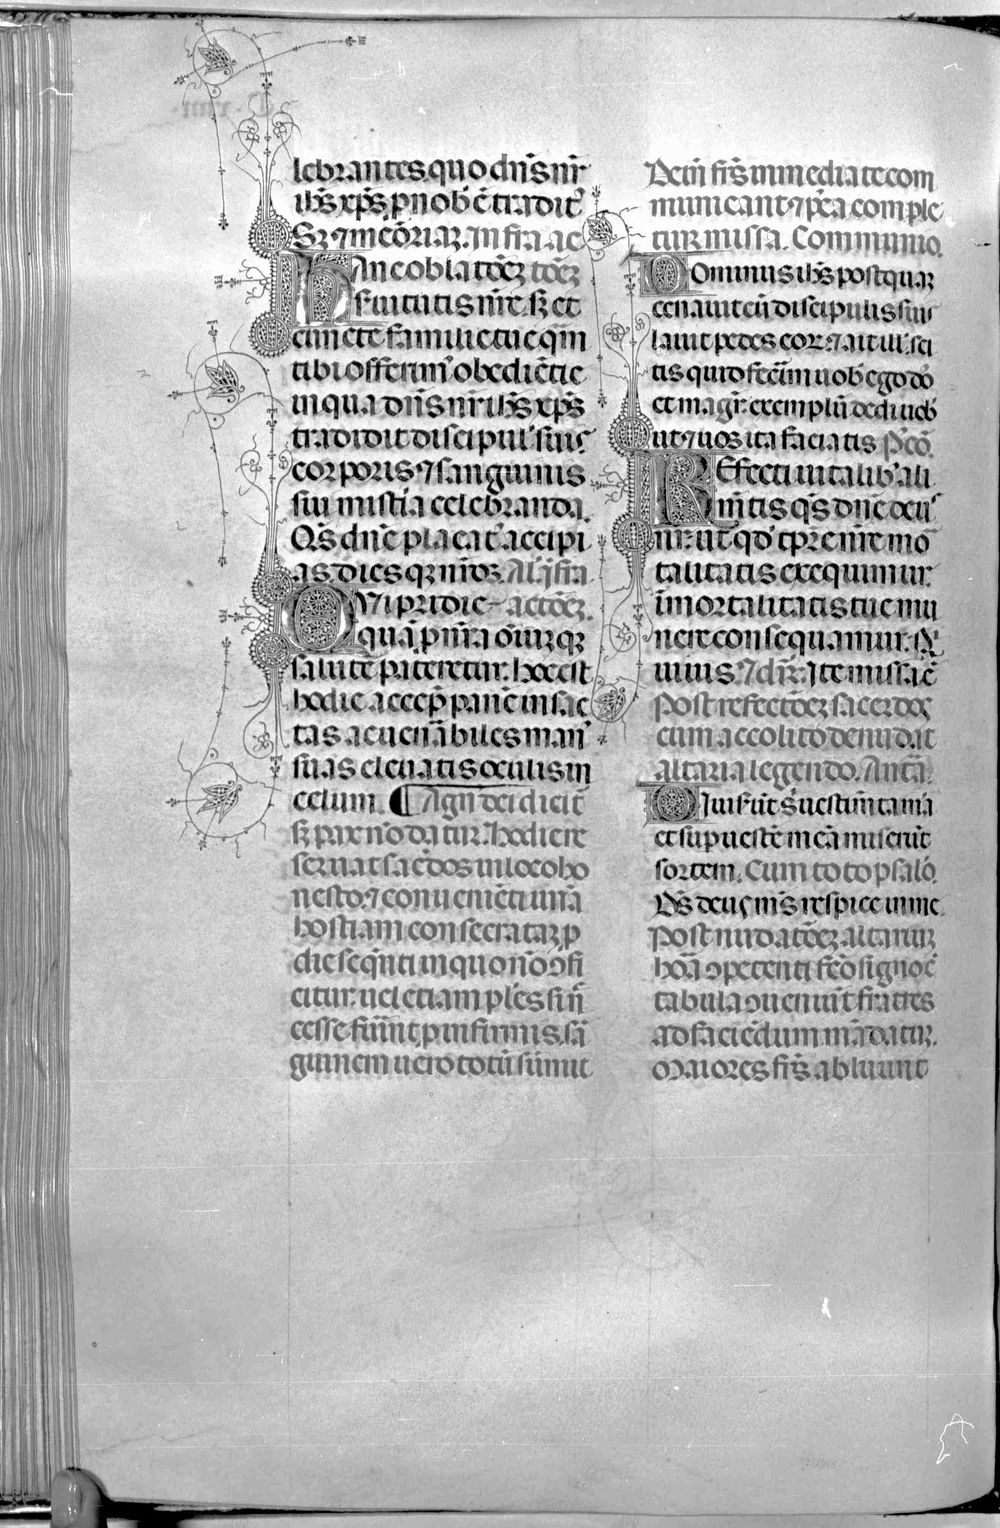 lebrantes quo dñs nr̃
ih̃s xp̃s p nob̾ ẽ tradit̾
Sꝫ ⁊ mẽoriaꝫ. Infra ac
HAnc oblatõeꝫ tõeꝫ
s̾uitutis nr̃e. sꝫ et
cuncte familie tue q̃m
tibi offerim̾ ob diẽ
in qua dñs nr̃ ih̃s xp̃s
tradidit discipul̾ suis
corporis ⁊ sanguinis
sui mistia celebranda.
Q̃s dñe placat̾ accipi
as. dies qꝫ nr̃os. Al̾. ĩfra
QVi pridie actõeꝫ
quã p nr̃a õniuꝫ qꝫ
salute pateretur. hoc est
hodie accep̃ panẽ in sãc
tas ac uenãbiles man̾
suas eleuatis oculis in
celum. ¶ Agn̾ dei dicit̾
sꝫ pax nõ datur. Hodie re
seruat sac̾dos in loco ho
nesto ⁊ conueniẽti unã
hostiam consecrataꝫ p
die seq̃nti in quo nõ ↄfi
citur. uel etiam pl̾es si ñ
cesse fũint p infirmis. sã
guinem uero totũ sumit
Dein fr̃s immediate com
municant ⁊ p̾ea comple
tur missa. Communio.
DOminus ih̃s postquaꝫ
cenauit cũ discipulis suis
lauit pedes eoꝝ ⁊ ait ill̾. sci
tis quid fec̾im uob̾ ego dõ
et magr̃. exemplũ dedi uob̾
ut ⁊ uos ita faciatis P̾cõ.
REfecti uitalib̾ ali
mẽtis q̃s dñe deus
nr̃. ut qd̾ tp̃re nr̃e mo
talitatis exequimur
ĩmortalitatis tue mu
nere consequamur. Q̾
uiuis. ⁊ dr̃. Ite missa ẽ
Post refectõeꝫ sacerdos
cum accolito denudat
altaria legendo. Antã.
DIuiserũt s̾ uestimta mã
et sup uestẽ meã miserũt
sortem. Cum toto psalõ.
D̾s deus m̃s respice in me
Post nudatõeꝫ altariuꝫ
horã ↄpetenti fc̃o signo c̾
tabula ↄueniũt fratres
ad faciẽdum mãdatuꝫ.
Maiores fr̃s abluunt